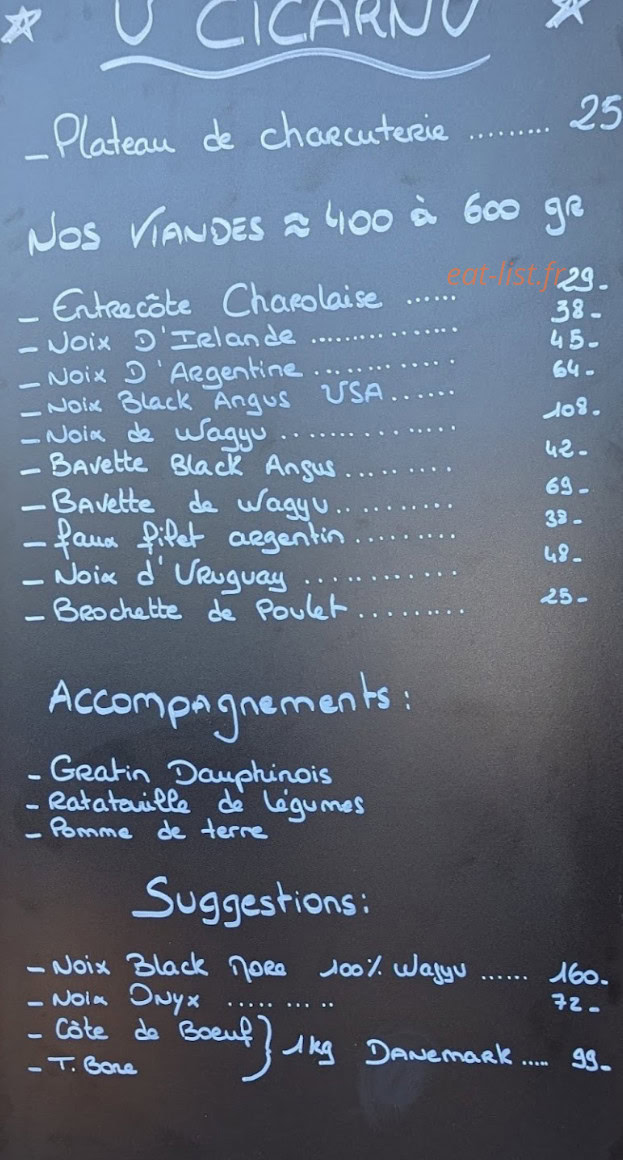 U CICARNU
- Plateau de charcuterie ......... 25
Nos Viandes ≈ 400 à 600 gr
eat-list.fr
- Entrecôte Charolaise ...... 29-
- Noix D'Irlande ................. 38-
- Noix D'Argentine ................ 45-
- Noix Black Angus USA ....... 64-
- Noix de Wagyu ................. 108-
- Bavette Black Angus .......... 42-
- Bavette de Wagyu ........... 69-
- faux filet argentin .......... 38-
- Noix d'Uruguay ............. 48-
- Brochette de Poulet .......... 25-
Accompagnements :
- Gratin Dauphinois
- Ratatouille de légumes
- Pomme de terre
Suggestions :
- Noix Black More 100% Wagyu ...... 160-
- Noix Onyx .......... 72-
- Côte de Boeuf
- T. Bone } 1kg Danemark ..... 99-